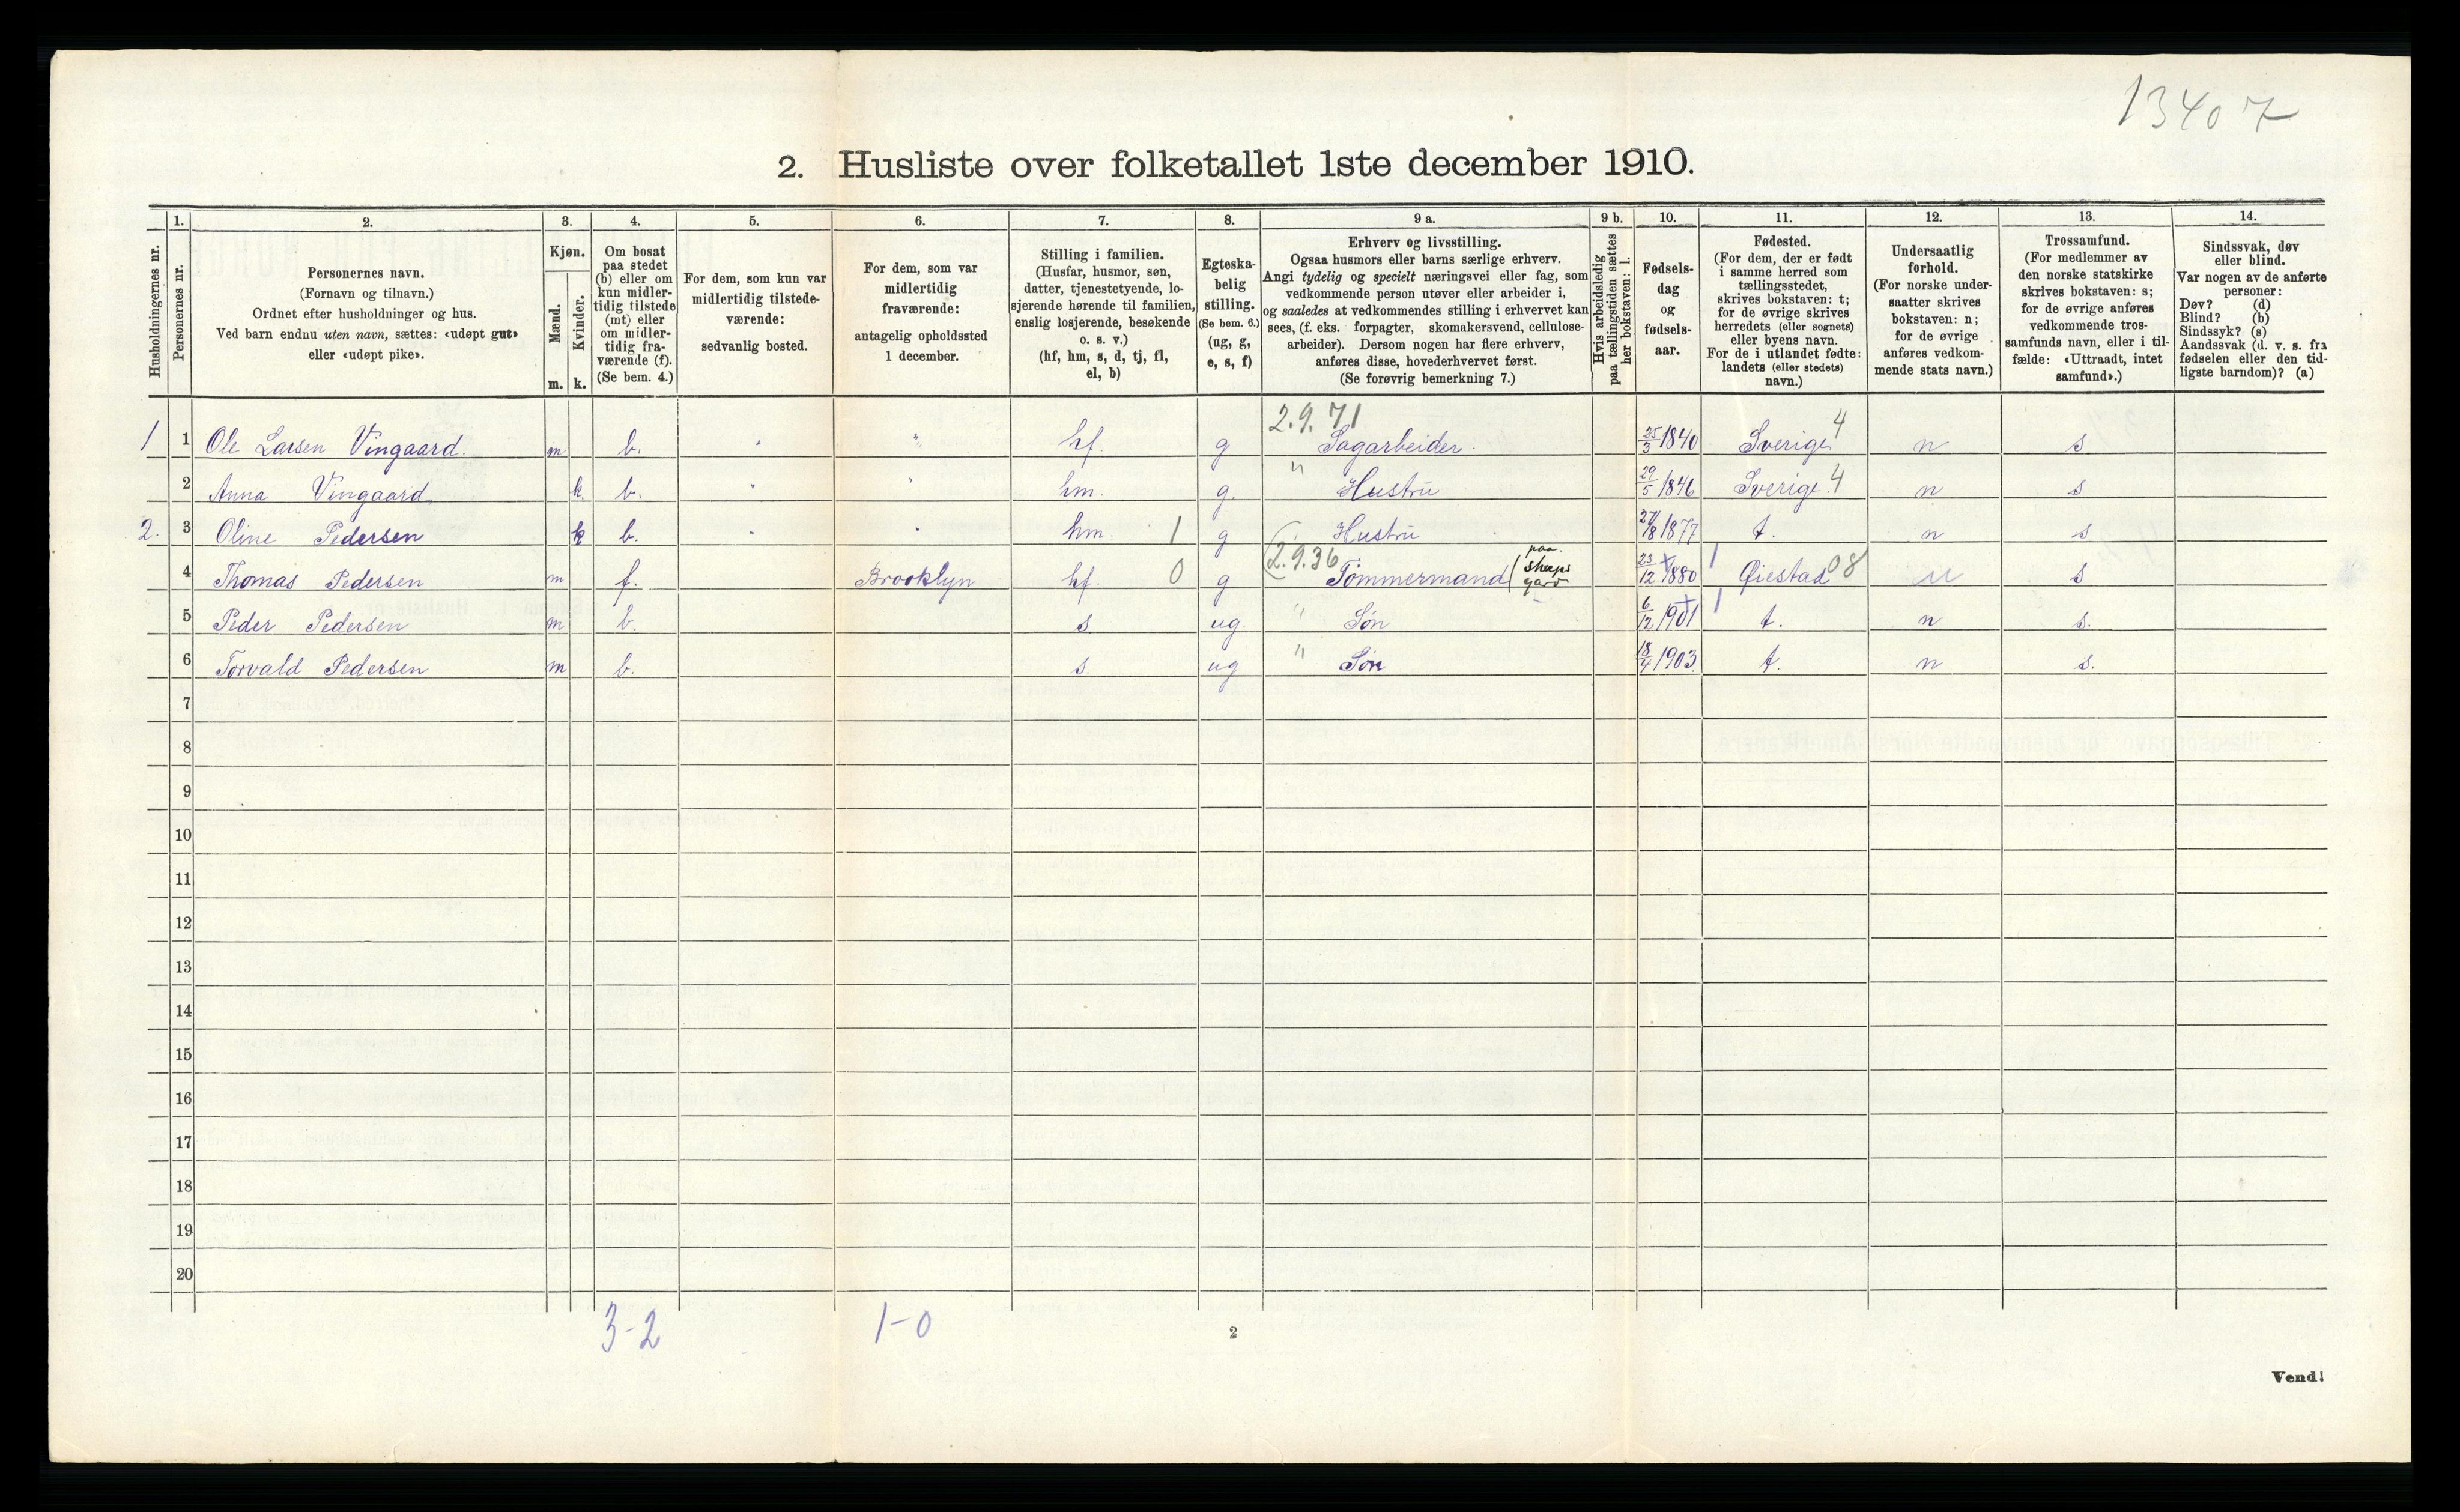 13407
2. Husliste over folketallet 1ste december 1910.
Husholdningernes nr.
1.
Personernes nr.
2.
Personernes navn.
(Fornavn og tilnavn.)
Ordnet efter husholdninger og hus.
Ved barn endnu uten navn, sættes: «udøpt gut»
eller «udøpt pike».
3.
Kjøn.
Mænd.
Kvinder.
m. k.
4.
Om bosat
paa stedet
(b) eller om
kun midler-
tidig tilstede
(mt) eller
om midler-
tidig fra-
værende (f).
(Se bem. 4.)
5.
For dem, som kun var
midlertidig tilstede-
værende:
sedvanlig bosted.
6.
For dem, som var
midlertidig
fraværende:
antagelig opholdssted
1 december.
7.
Stilling i familien.
(Husfar, husmor, søn,
datter, tjenestetyende, lo-
sjerende hørende til familien,
enslig losjerende, besøkende
o. s. v.)
(hf, hm, s, d, tj, fl,
el, b)
8.
Egteska-
belig
stilling.
(Se bem. 6.)
(ug, g,
e, s, f)
9 a.
Erhverv og livsstilling.
Ogsaa husmors eller barns særlige erhverv.
Angi tydelig og specielt næringsvei eller fag, som
vedkommende person utøver eller arbeider i,
og saaledes at vedkommendes stilling i erhvervet kan
sees, (f. eks. forpagter, skomakersvend, cellulose-
arbeider). Dersom nogen har flere erhverv,
anføres disse, hovederhvervet først.
(Se forøvrig bemerkning 7.)
9 b.
Hvis arbeidsledig
paa tællingstiden sættes
her bokstaven: l.
10.
Fødsels-
dag
og
fødsels-
aar.
11.
Fødested.
(For dem, der er født
i samme herred som
tællingsstedet,
skrives bokstaven: t;
for de øvrige skrives
herredets (eller sognets)
eller byens navn.
For de i utlandet fødte:
landets (eller stedets)
navn.)
12.
Undersaatlig
forhold.
(For norske under-
saatter skrives
bokstaven: n;
for de øvrige
anføres vedkom-
mende stats navn.)
13.
Trossamfund.
(For medlemmer av
den norske statskirke
skrives bokstaven: s;
for de øvrige anføres
vedkommende tros-
samfunds navn, eller i til-
fælde: «Uttraadt, intet
samfund».)
14.
Sindssvak, døv
eller blind.
Var nogen av de anførte
personer:
Døv? (d)
Blind? (b)
Sindssyk? (s)
Aandssvak (d. v. s. fra
fødselen eller den tid-
ligste barndom)? (a)
2.9.71
1 1 Ole Larsen Vingaard. m b. " " hf. g Sagarbeider. 25/3 1840 Sverige 4 n s
2 Anna Vingaard. k. b. " " hm. g. " Hustru 29/5 1846 Sverige. 4 n s
2. 3 Oline Pedersen k b. " " hm. 1 g Hustru 27/8 1877 t. n s
2.9.36
4 Thomas Pedersen m f. Brooklyn hf. 0 g Tømmermand (paa. sheeps gard 23/12 1880 Øiestad 08 n s
5 Peder Pedersen m b. s ug. " Søn 6/12 1901 t. n s.
6 Torvald Pedersen m b. s. ug " Søn 18/4 1903. t. n s.
7
8
9
10
11
12
13
14
15
16
17
18
19
20
3-2 1-0
2
Vend!